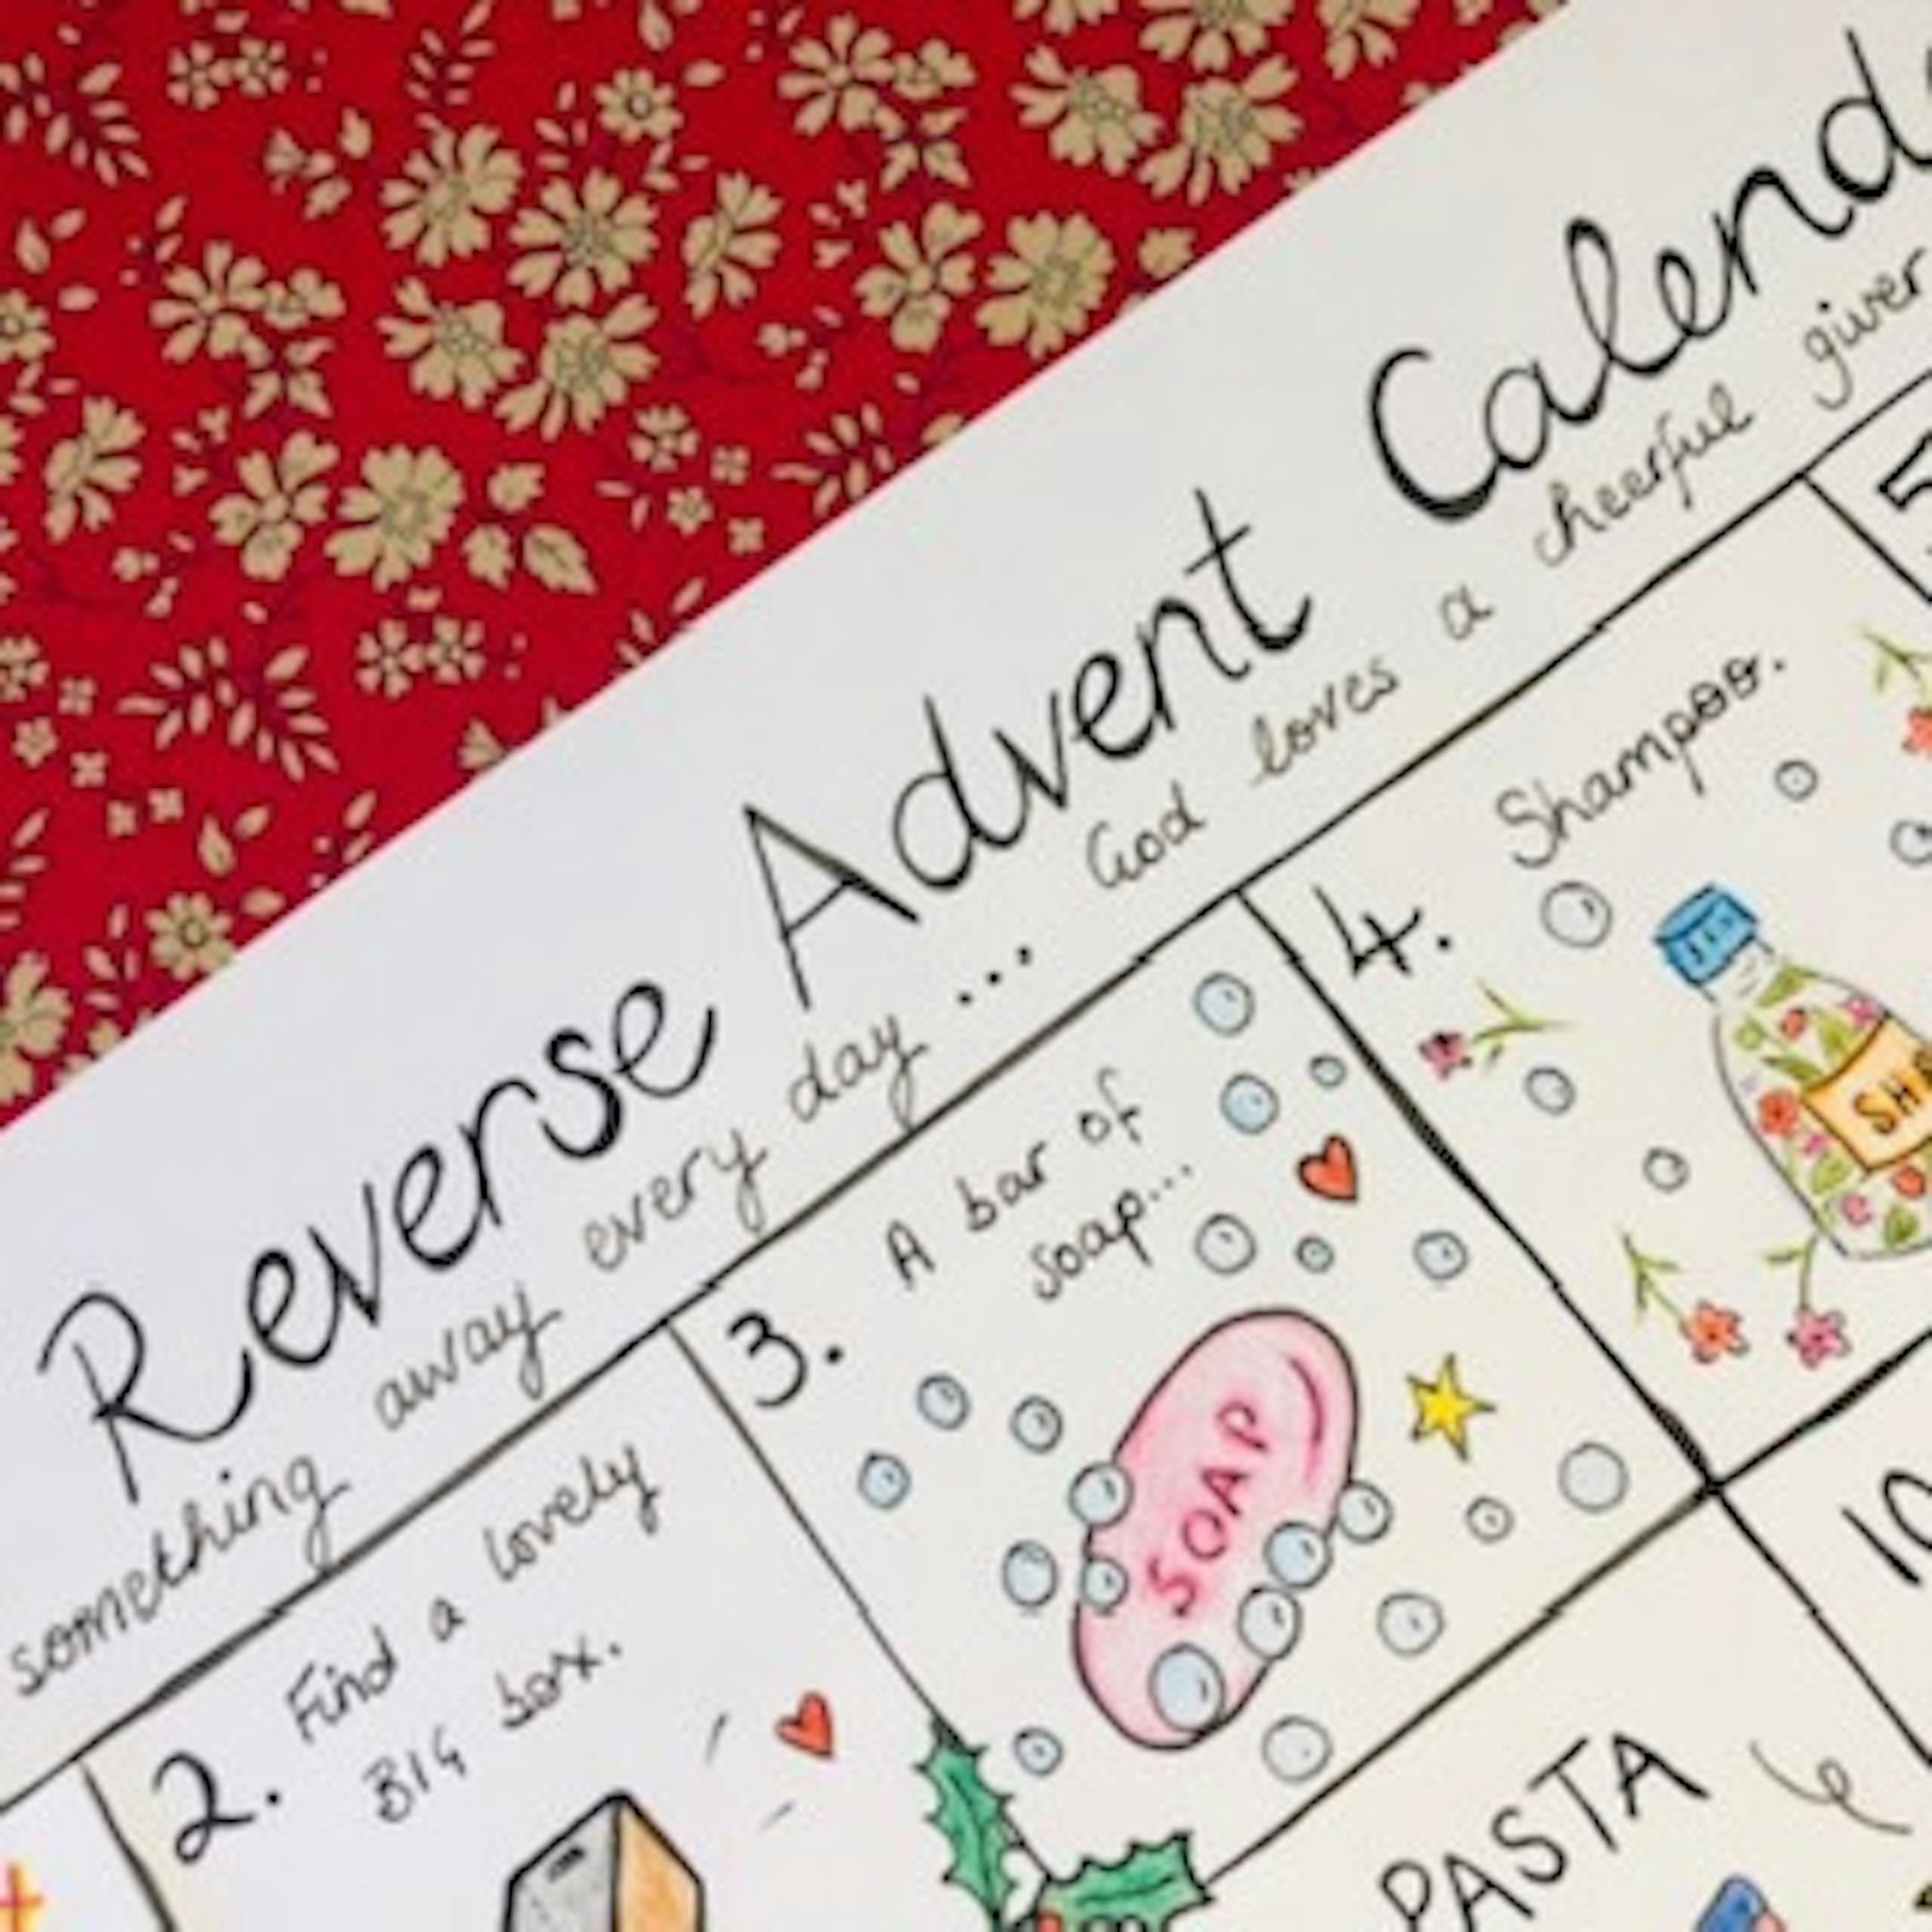 Reverse Advent Calend
something away every day ... God loves a cheerful giver
2. Find a lovely
BIG box.
3. A bar of
soap...
SOAP
4. Shampoo.
SHA
5
PASTA
10